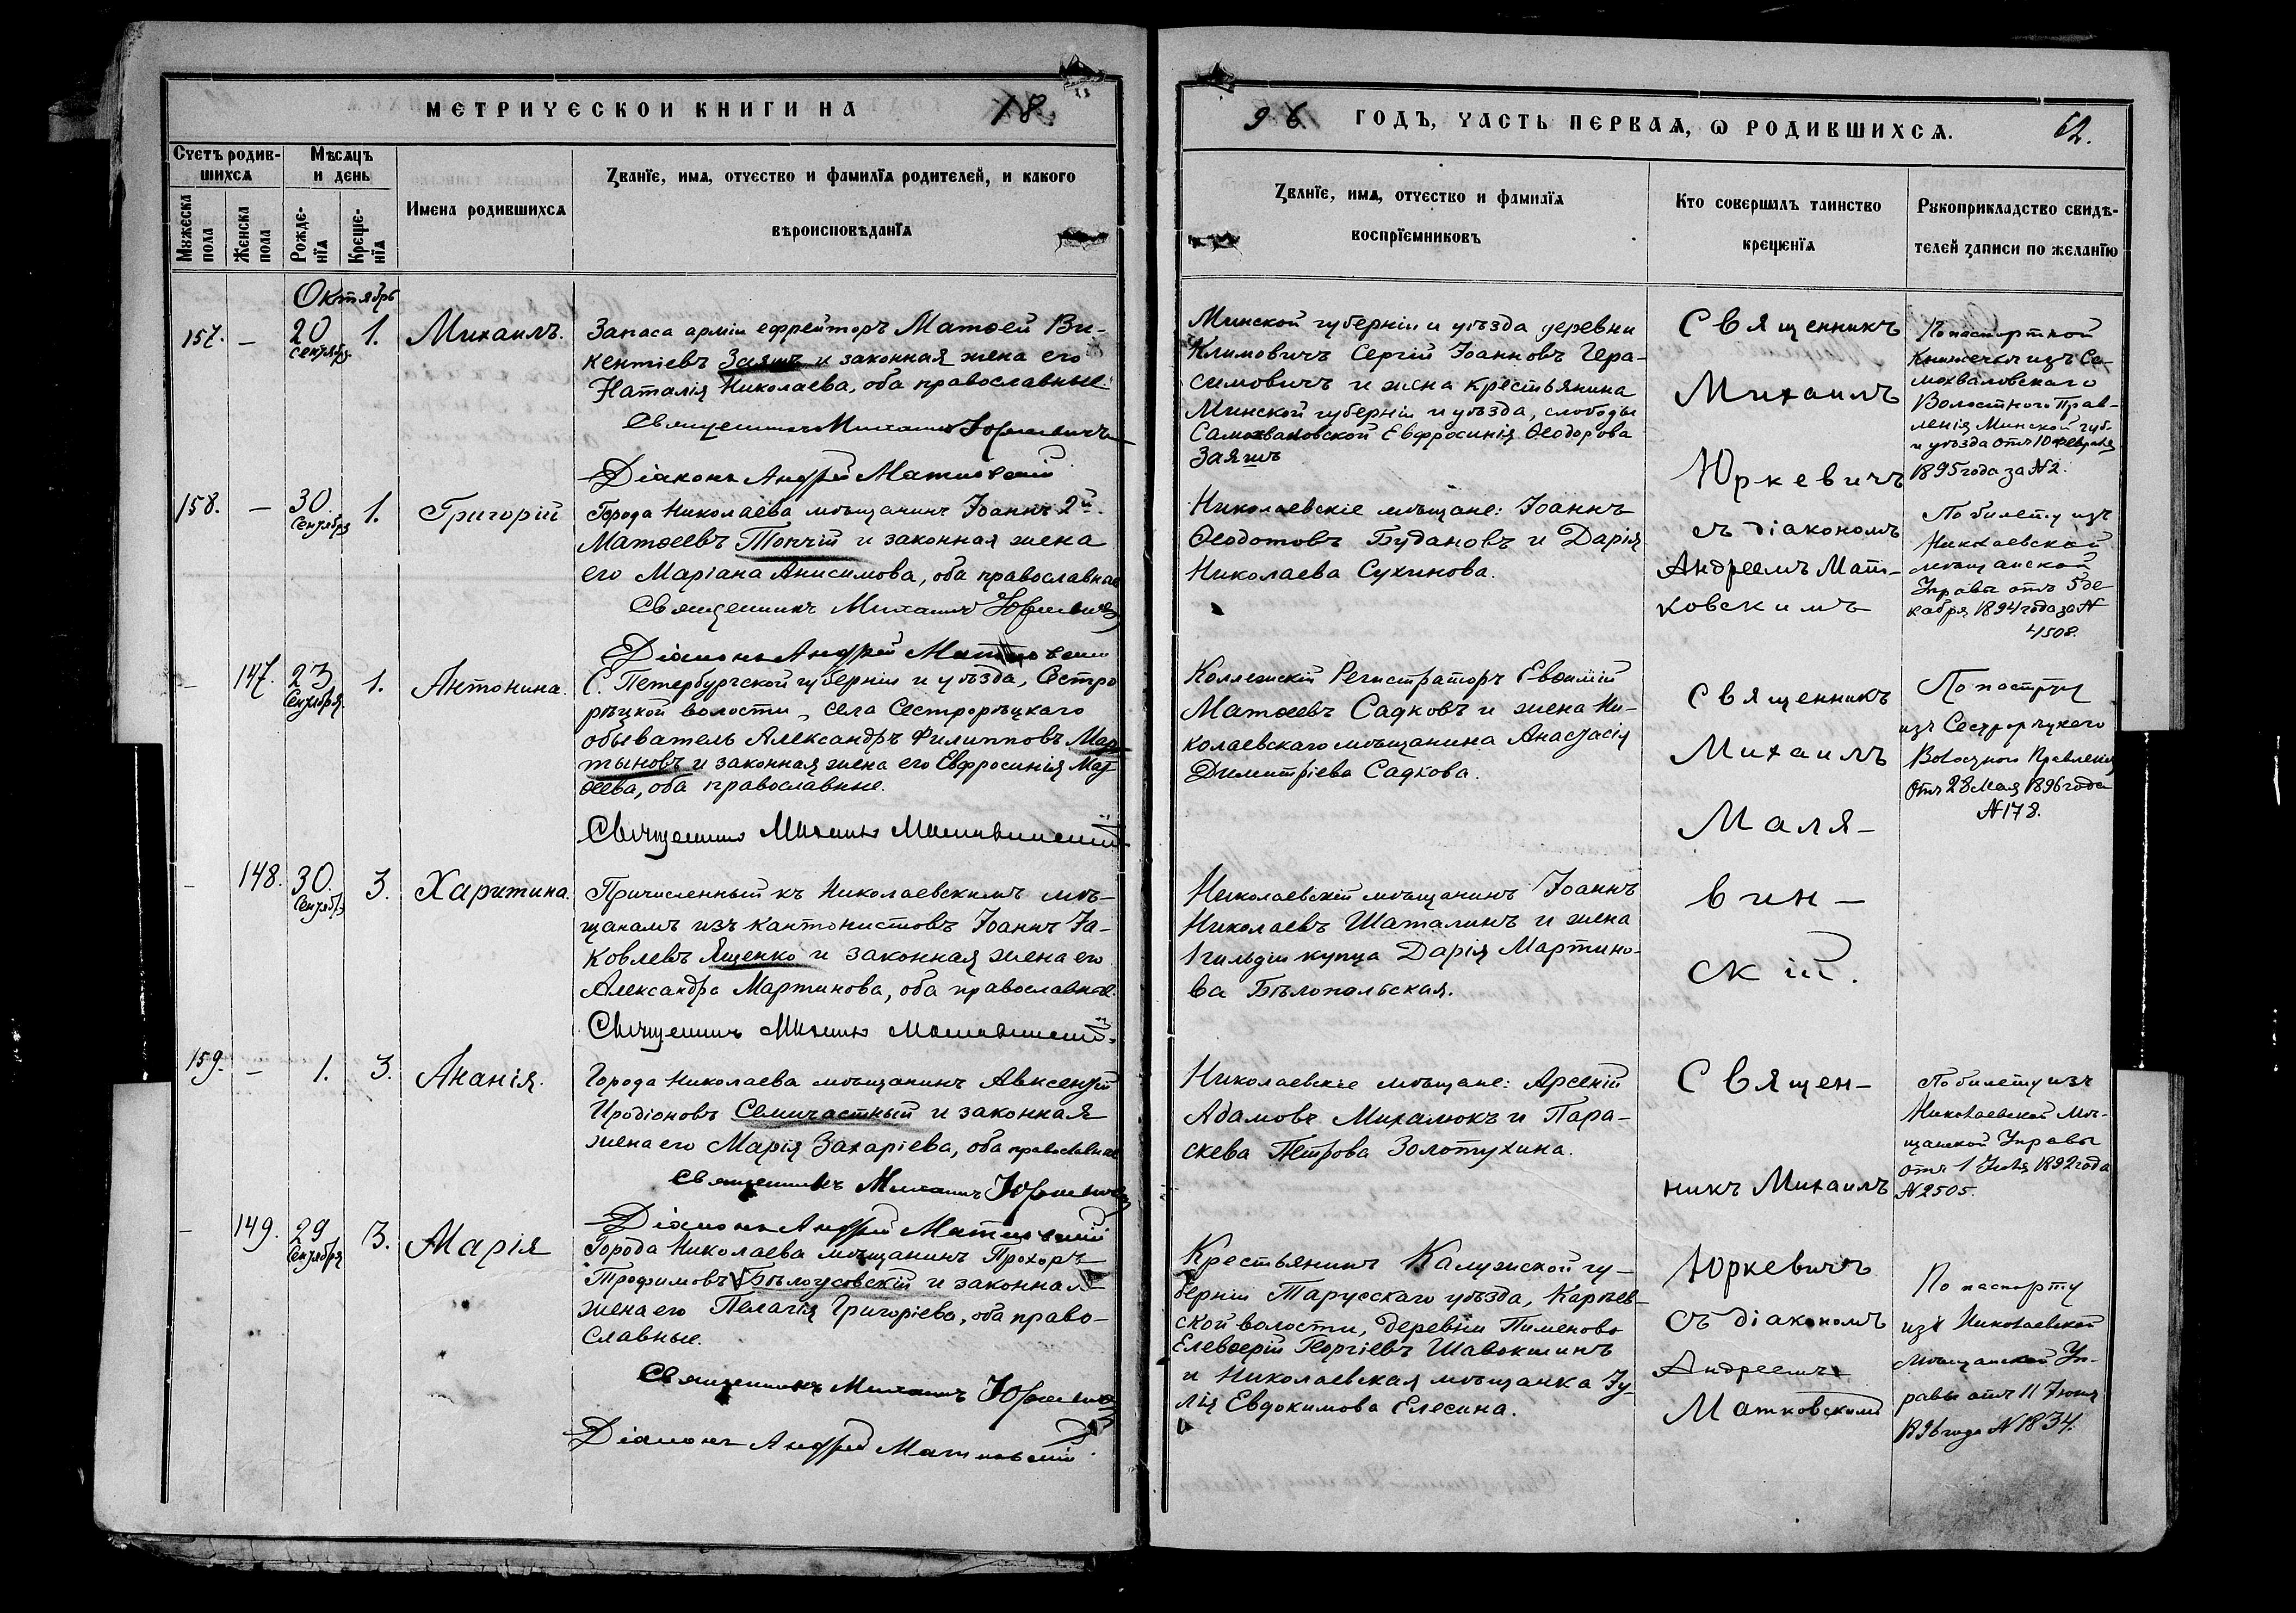 МЕТРИЧЕСКОЙ КНИГИ НА 1896 ГОДЪ, ЧАСТЬ ПЕРВАЯ, Ѡ РОДИВШИХСЯ. 62.
Счетъ родившихся
Мужеска пола
Женска пола
Мѣсяцъ и день
Рожденїя
Крещенїя
Имена родившихся
Званїе, имя, отчество и фамилїя родителей, и какого
вѣроисповѣданїя
Званїе, имя, отчество и фамилїя
воспрїемниковъ
Кто совершалъ таинство
крещенїя
Рукоприкладство свидѣ-
телей записи по желанїю
Октябрь
157. – 20 сентября 1. Михаилъ.
Запаса арміи ефрейторъ Матѳей Ви-
кентіевъ Заяшъ и законная жена его
Наталія Николаева, оба православные.
Священникъ Михаилъ Юркевичъ
Діаконъ Андрей Матковскій
Минской губерніи и уѣзда деревни
Климовичъ Сергій Іоанновъ Гера-
симовичъ и жена крестьянина
Минской губерніи и уѣзда, слободы
Самохваловской Евфросинія Ѳеодорова
Заяшъ
Священникъ
Михаилъ
Юркевичъ
съ діакономъ
Андреемъ Мат-
ковскимъ
По паспортной
книжечкѣ изъ Са-
мохваловскаго
Волостного Прав-
ленія Минской губ.
и уѣзда отъ 10 февраля
1895 года за № 2.
158. – 30. Сентября 1. Григорій
Города Николаева мѣщанинъ Іоаннъ 2й
Матѳеевъ Топчій и законная жена
его Маріана Анисимова, оба православные
Священникъ Михаилъ Юркевичъ
Діаконъ Андрей Матковскій
Николаевскіе мѣщане: Іоаннъ
Ѳеодотовъ Будановъ и Дарія
Николаева Сухинова.
По билету изъ
Николаевской
мѣщанской
Управы отъ 5 де-
кабря 1894 года за №
4508.
– 147. 23 Сентября. 1. Антонина.
С. Петербургской губерніи и уѣзда, Сестро
рѣцкой волости, села Сестрорѣцкаго
обыватель Александръ Филипповъ Мар-
тыновъ и законная жена его Евфросинія Мат
ѳеева, оба православные.
Священникъ Михаилъ Малявинскій
Коллежскій Регистраторъ Евѳимій
Матѳеевъ Садковъ и жена Ни-
колаевскаго мѣщанина Анастасія
Димитріева Садкова.
Священникъ
Михаилъ
Маля-
вин-
скій.
По паспорту
изъ Сестрорѣцкаго
Волостного Правленія
отъ 28 Мая 1896 года
№ 178.
– 148. 30. Сентября 3. Харитина.
Причисленный къ Николаевскимъ мѣ-
щанамъ изъ кантонистовъ Іоаннъ Іа-
ковлевъ Ященко и законная жена его
Александра Мартинова, оба православные.
Священникъ Михаилъ Малявинскій.
Николаевскій мѣщанинъ Іоаннъ
Николаевъ Шаталинъ и жена
1 гильдіи купца Дарія Мартино-
ва Бѣлопольская.
159. – 1. 3. Ананія.
Города Николаева мѣщанинъ Авксентій
Иродіоновъ Семичастный и законная
жена его Марія Захаріева, оба православные
Священникъ Михаилъ Юркевичъ
Діаконъ Андрей Матковскій
Николаевскіе мѣщане: Арсеній
Адамовъ Михалюкъ и Пара-
скева Петрова Золотухина.
Священ-
никъ Михаилъ
Юркевичъ
съ діакономъ
Андреемъ
Матковскимъ
По билету изъ
Николаевской Мѣ-
щанской Управы
отъ 1 Іюля 1892 года
№ 2505.
– 149. 29 Сентября 3. Марія
Города Николаева мѣщанинъ Прохоръ
Трофимовъ Бѣлоусовскій и законная
жена его Пелагія Григоріева, оба право-
славные.
Священникъ Михаилъ Юркевичъ
Діаконъ Андрей Матковскій
Крестьянинъ Калужской гу-
берніи Тарусскаго уѣзда, Карпев-
ской волости, деревни Пименово
Елевѳерій Георгіевъ Шавокшинъ
и Николаевская мѣщанка Іу-
лія Евдокимова Елесина.
По паспорту
изъ Николаевской
Мѣщанской Уп-
равы отъ 11 Іюня
1896 года № 1834.